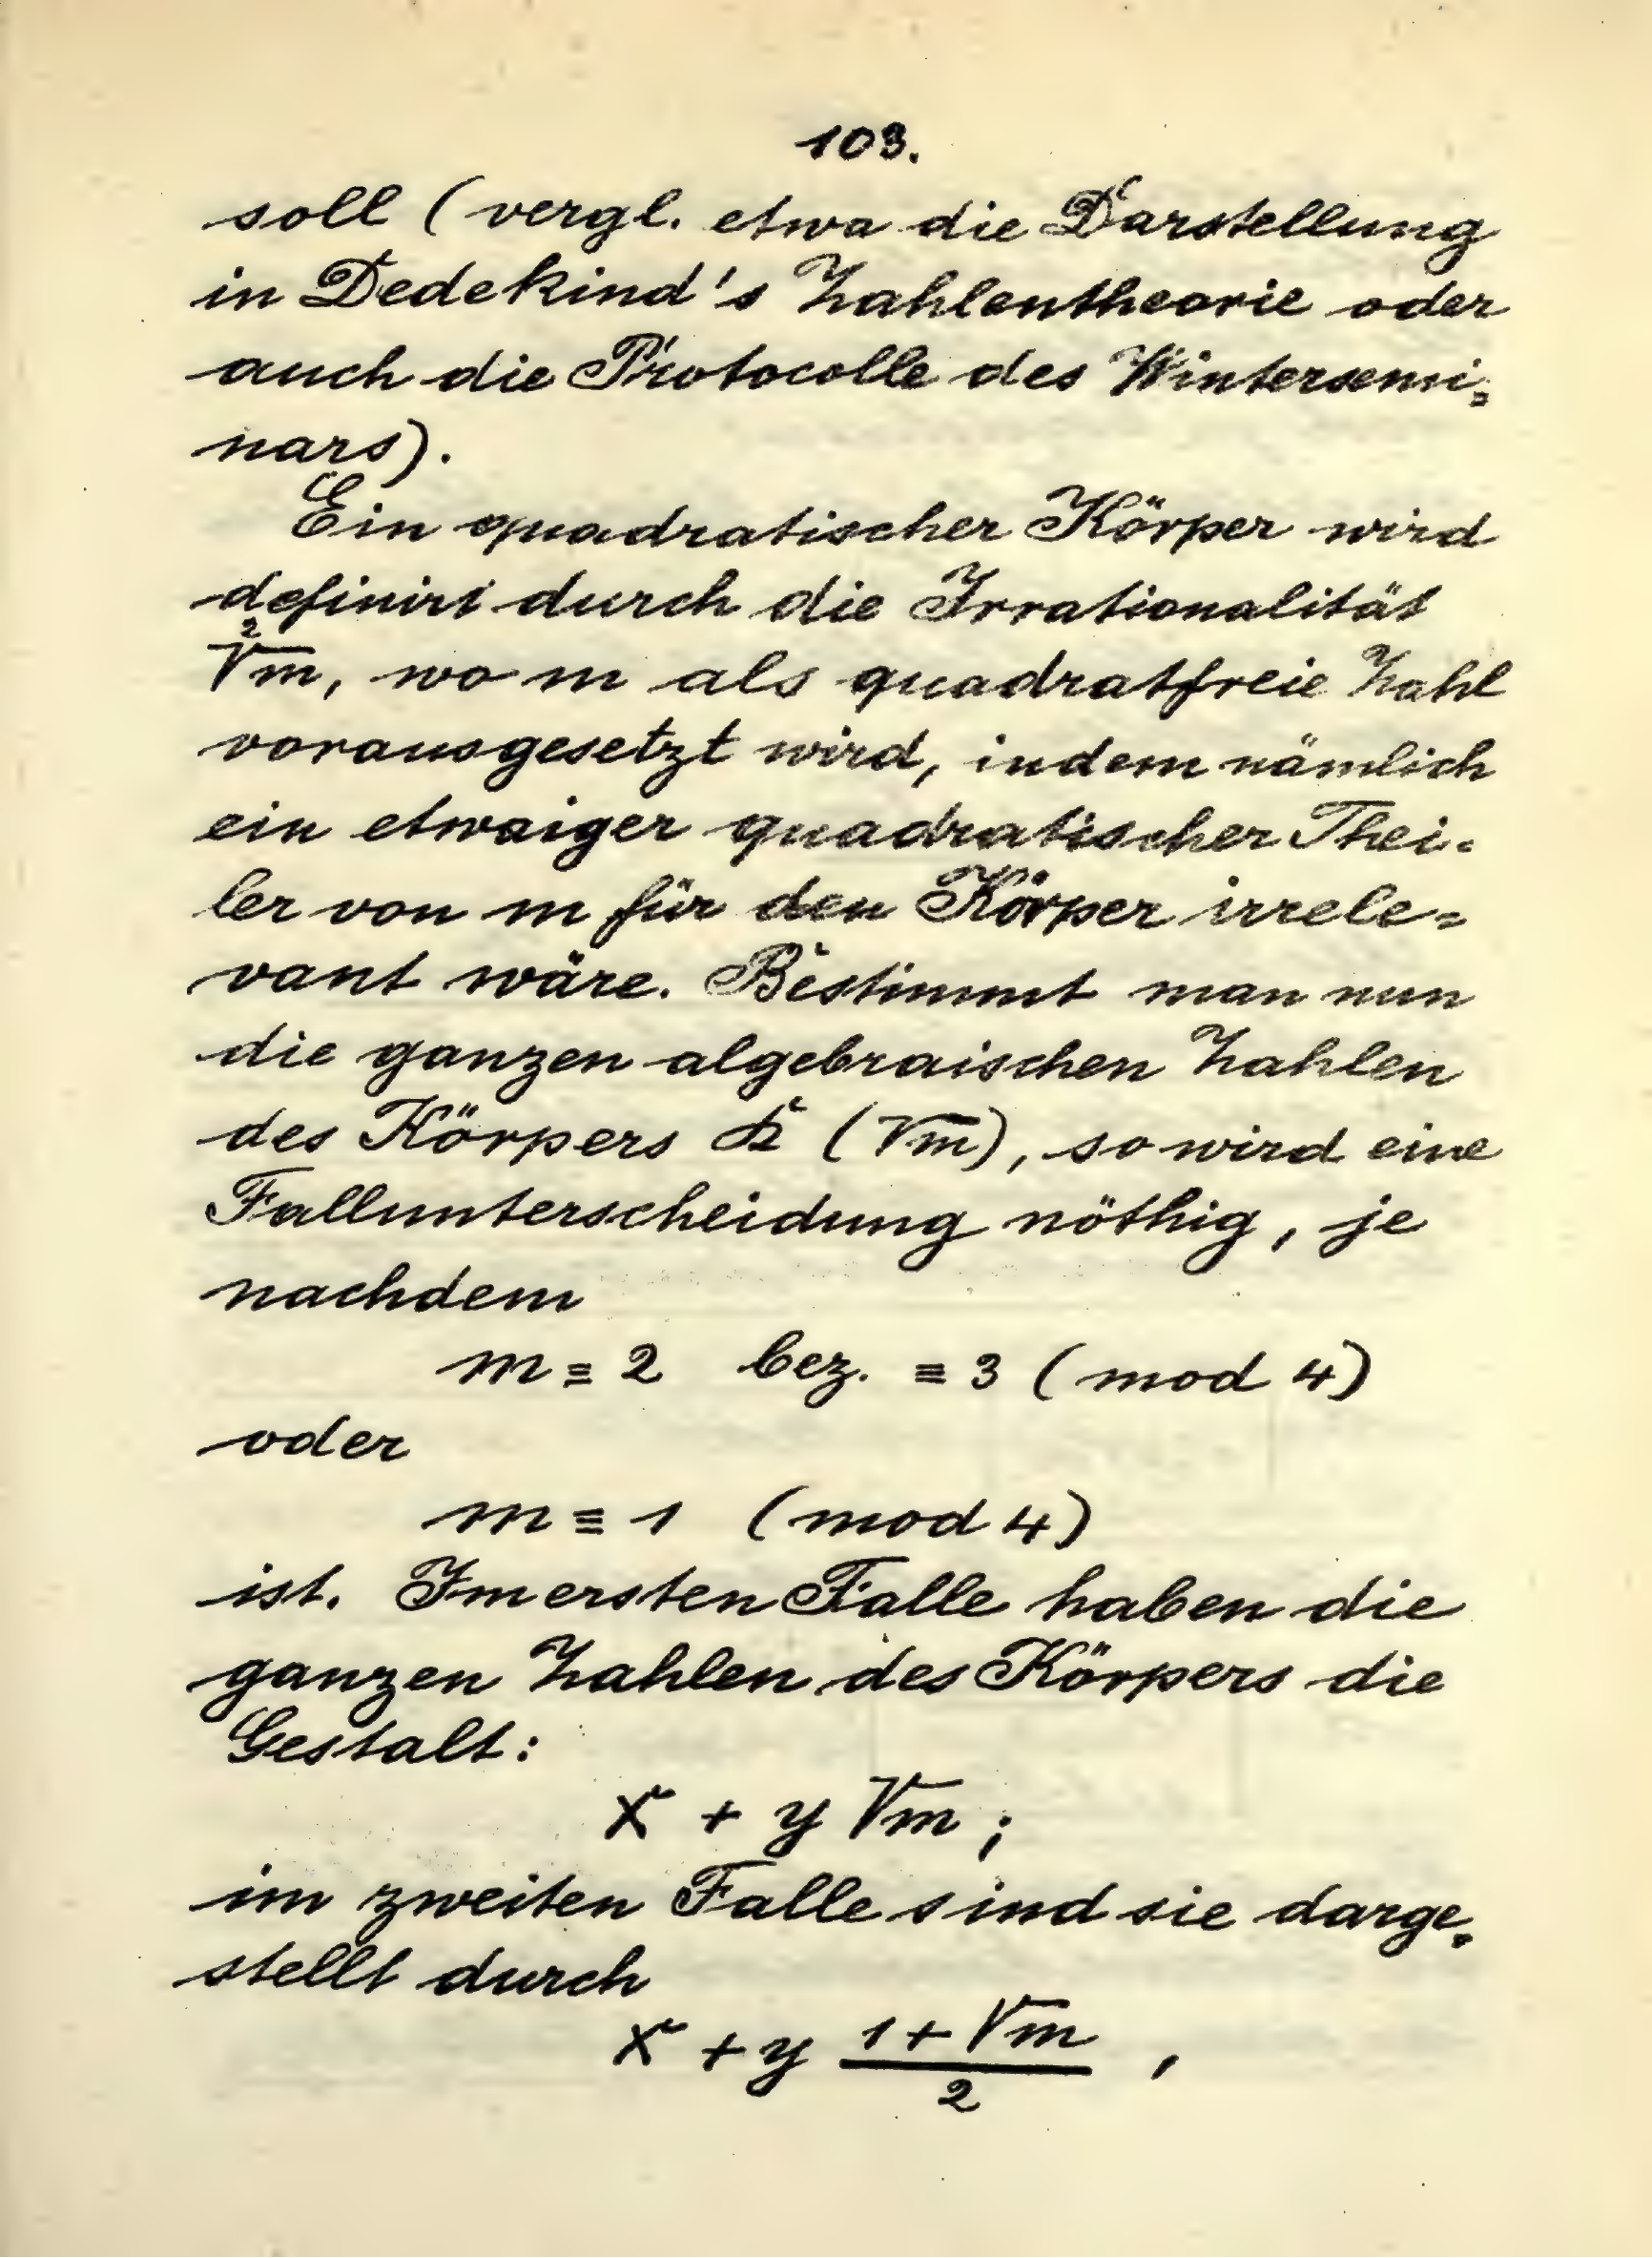 103.
soll (vergl. etwa die Darstellung
in Dedekind's Zahlentheorie oder
auch die Protocolle des Wintersemi-
nars).
Ein quadratischer Körper wird
definirt durch die Irrationalität
²√m, wo m als quadratfreie Zahl
vorausgesetzt wird, indem nämlich
ein etwaiger quadratischer Thei-
ler von m für den Körper irrele-
vant wäre. Bestimmt man nun
die ganzen algebraischen Zahlen
des Körpers k (√m), so wird eine
Fallunterscheidung nöthig, je
nachdem
m ≡ 2 bez. ≡ 3 (mod 4)
oder
m ≡ 1 (mod 4)
ist. Im ersten Falle haben die
ganzen Zahlen des Körpers die
Gestalt:
x + y √m ;
im zweiten Falle sind sie darge-
stellt durch
x + y (1 + √m)/2 ,